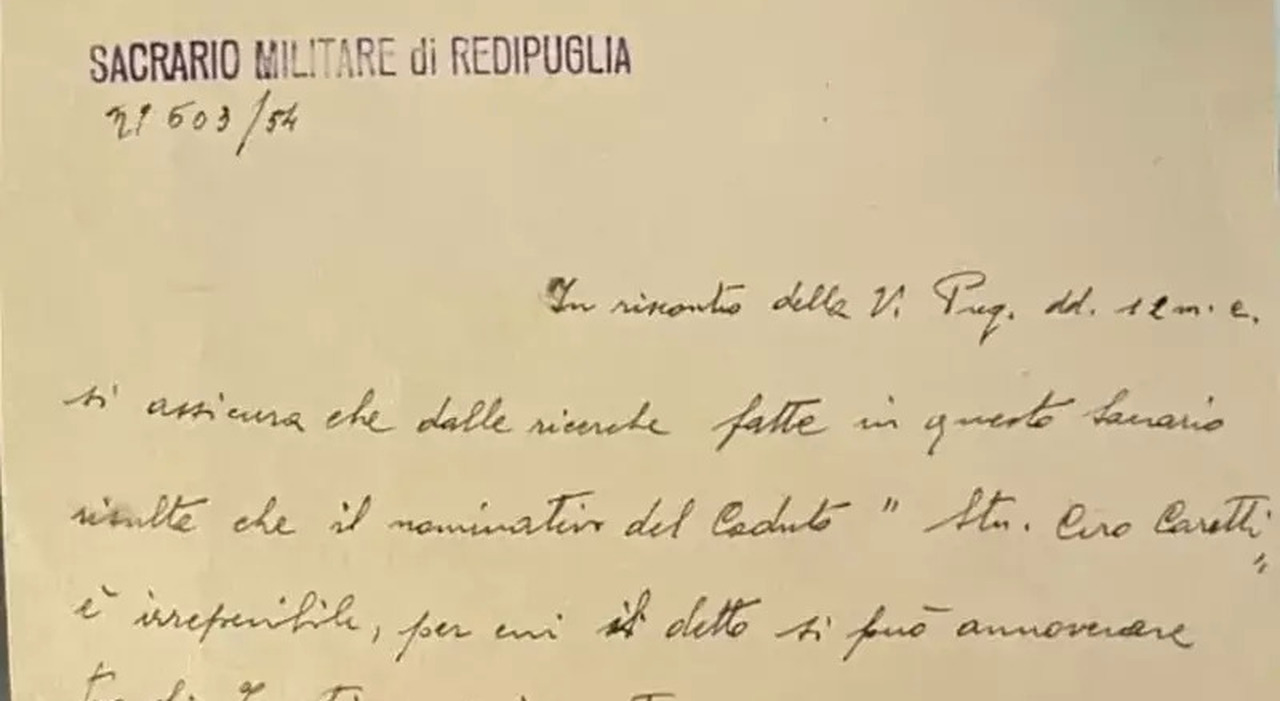 SACRARIO MILITARE di REDIPUGLIA
N° 603/54
In riscontro della V. Preg. dd. 12 m. c.
si assicura che dalle ricerche fatte in questo Sacrario
risulta che il nominativo del Caduto " Stn. Ciro Caretti "
è irreperibile, per cui il detto si può annoverare